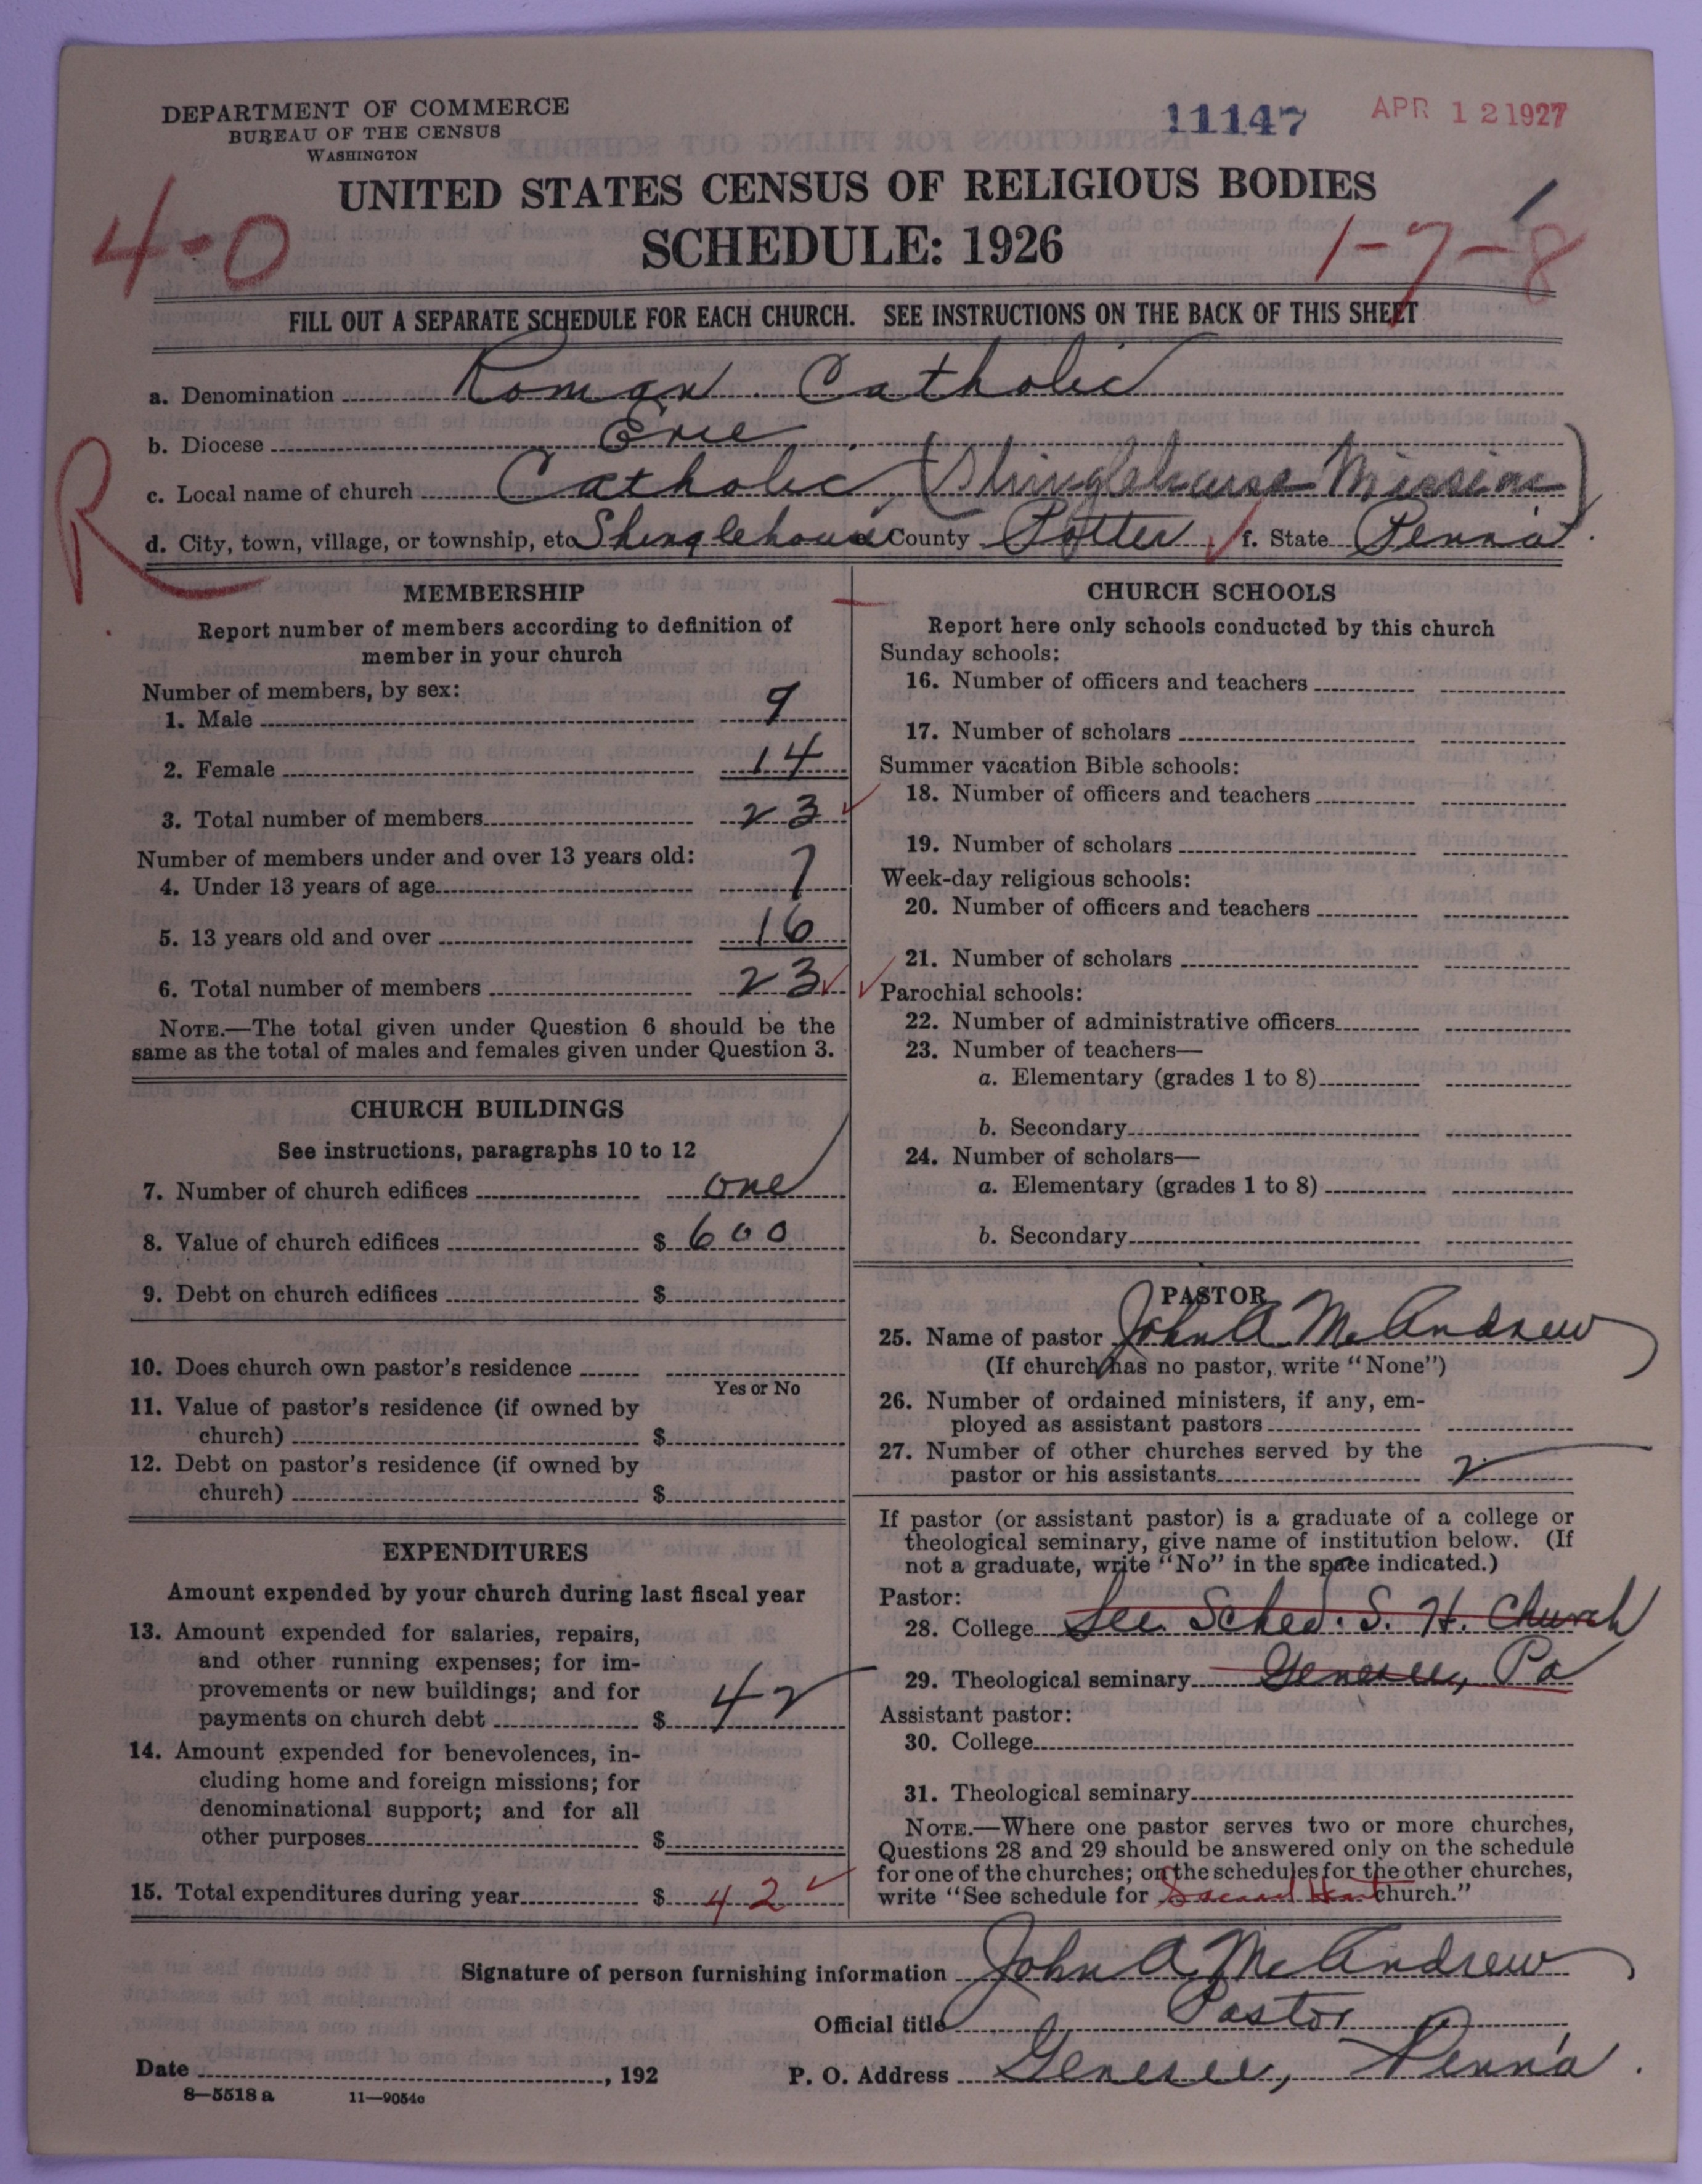 DEPARTMENT OF COMMERCE
BUREAU OF THE CENSUS
WASHINGTON
11147
APR 12 1927
UNITED STATES CENSUS OF RELIGIOUS BODIES
SCHEDULE: 1926
4-0
1-7-8
FILL OUT A SEPARATE SCHEDULE FOR EACH CHURCH. SEE INSTRUCTIONS ON THE BACK OF THIS SHEET
a. Denomination Roman Catholic
b. Diocese Erie
c. Local name of church Catholic, (Shinglehouse Mission)
R
d. City, town, village, or township, etc Shinglehouse County Potter f. State Penna.
MEMBERSHIP
Report number of members according to definition of
member in your church
Number of members, by sex:
1. Male 9
2. Female 14
3. Total number of members 23
Number of members under and over 13 years old:
4. Under 13 years of age 7
5. 13 years old and over 16
6. Total number of members 23
NOTE.—The total given under Question 6 should be the
same as the total of males and females given under Question 3.
CHURCH BUILDINGS
See instructions, paragraphs 10 to 12
7. Number of church edifices one
8. Value of church edifices $ 600
9. Debt on church edifices $
10. Does church own pastor's residence
Yes or No
11. Value of pastor's residence (if owned by
church) $
12. Debt on pastor's residence (if owned by
church) $
EXPENDITURES
Amount expended by your church during last fiscal year
13. Amount expended for salaries, repairs,
and other running expenses; for im-
provements or new buildings; and for
payments on church debt $ 42
14. Amount expended for benevolences, in-
cluding home and foreign missions; for
denominational support; and for all
other purposes $
15. Total expenditures during year $ 42
CHURCH SCHOOLS
Report here only schools conducted by this church
Sunday schools:
16. Number of officers and teachers
17. Number of scholars
Summer vacation Bible schools:
18. Number of officers and teachers
19. Number of scholars
Week-day religious schools:
20. Number of officers and teachers
21. Number of scholars
Parochial schools:
22. Number of administrative officers
23. Number of teachers—
a. Elementary (grades 1 to 8)
b. Secondary
24. Number of scholars—
a. Elementary (grades 1 to 8)
b. Secondary
PASTOR
25. Name of pastor John A McAndrew
(If church has no pastor, write "None")
26. Number of ordained ministers, if any, em-
ployed as assistant pastors
27. Number of other churches served by the
pastor or his assistants 2
If pastor (or assistant pastor) is a graduate of a college or
theological seminary, give name of institution below. (If
not a graduate, write "No" in the space indicated.)
Pastor:
28. College See Sched. S. H. Church
29. Theological seminary Genesee, Pa
Assistant pastor:
30. College
31. Theological seminary
NOTE.—Where one pastor serves two or more churches,
Questions 28 and 29 should be answered only on the schedule
for one of the churches; on the schedules for the other churches,
write "See schedule for Sacred Heart church."
Signature of person furnishing information John A. McAndrew
Official title Pastor
Date , 192
P. O. Address Genesee, Penna.
8—5518 a
11—9054c